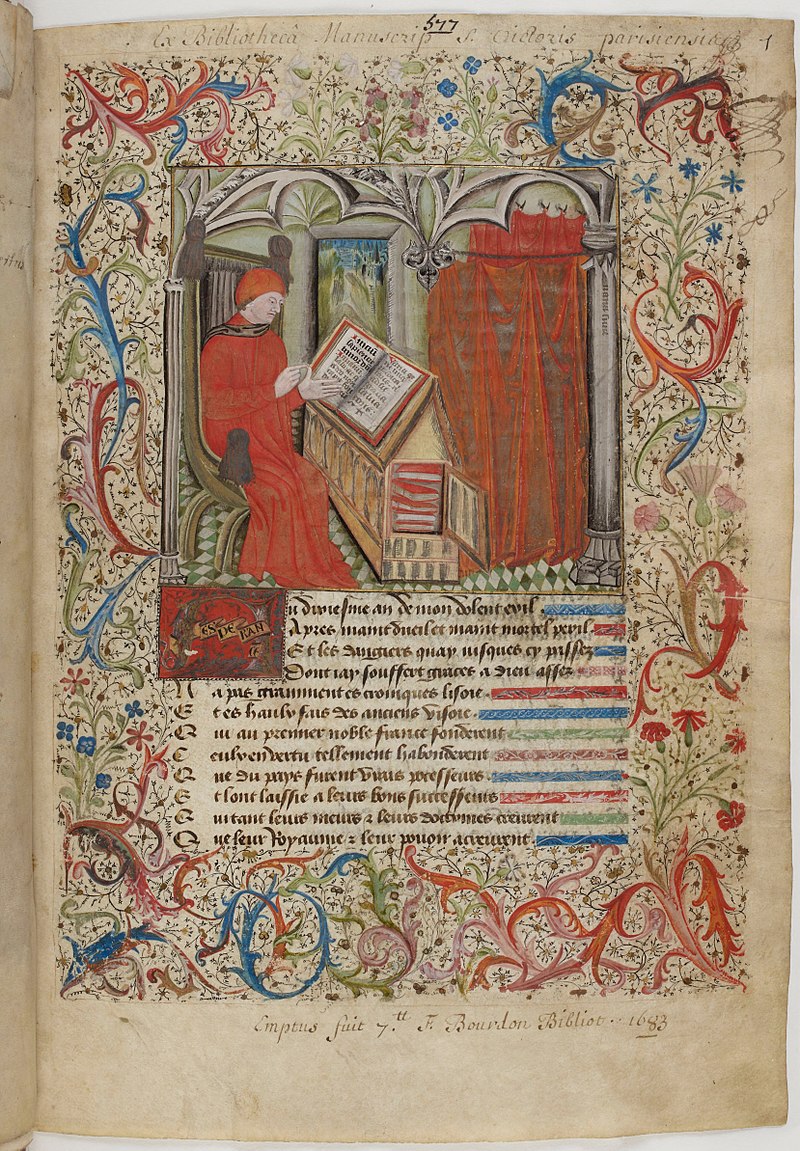 577
Ex Bibliothecâ Manuscrip. S. Victoris parisiensis 1
u dixiesme an de mon dolent exil
Apres maint dueil et maint mortel peril
Et les dangiers quay iusques cy passez
Dont iay souffert graces a dieu assez
N a pas gramment es croniques lisoie
E t es haulx fais des anciens visoie
Q ui au premier noble france fonderent
C eulx en vertu tellement habonderent
Q ue du pays furent vrais possesseurs
E t lont laissie a leurs bons successeurs
Q ui tant leurs meurs & leurs doctrines creurent
Q ue leur Royaume & leur pouoir acreurent
Emptus fuit 7.tt F. Bourdon Bibliot. 1683